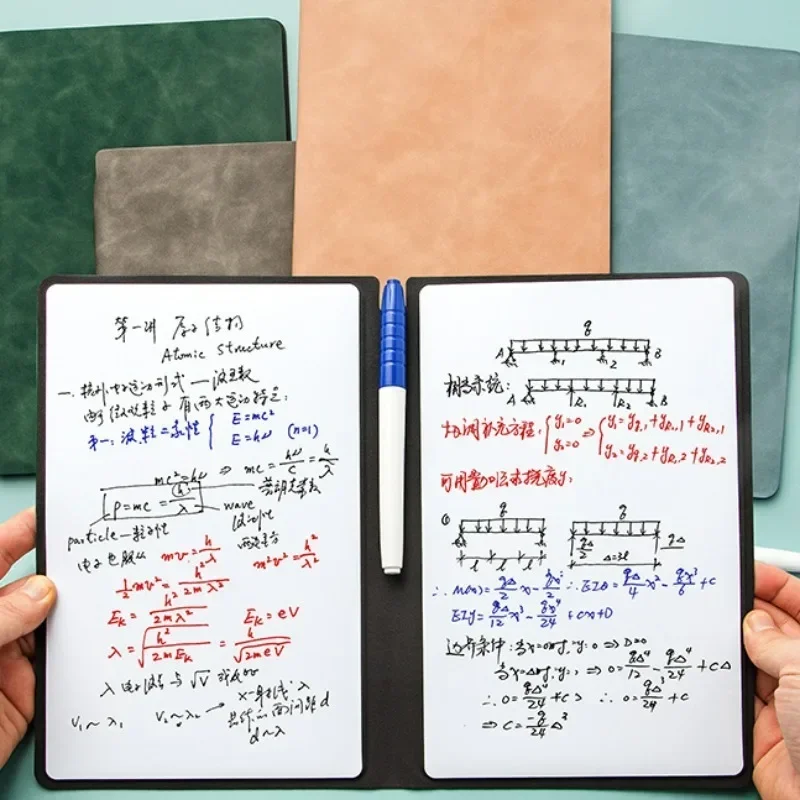 第一讲 原子结构
Atomic Structure
一. 运动形式 — 波函数
微观粒子有两大运动特点:
第一: 波粒二象性 { E=mc²
E=hν (n=1)
mc²=hν ⇒ mc = hν/c = h/λ
P=mc=h/λ
particle—粒子性
wave 波动性
mv=h/λ
m²v²=h²/λ²
½mv²=h²/2mλ²
Eₖ=h²/2mλ² Eₖ=eV
λ=√(h²/2mEₖ) = h/√(2meV)
λ 与 √V
V₁~λ₁ V₂~λ₂ → x-射线 λ
晶体的面间距 d
d~λ
q
A 1 2 B
相当系统:
A R₁ R₂ B
协调补充方程, { y₁=0 y₂=0 ⇒ { y₁=y_q,₁+y_R₁,₁+y_R₂,₁
y₂=y_q,₂+y_R₁,₂+y_R₂,₂
可用叠加法求挠度y:
① q q
l l l
qΔ/2 Δ=3l
∴ M(x)=qΔ/2 x-q/2 x² ∴ EIθ=qΔ/4 x²-qx³/6+C
EIy=qΔ/12 x³-qx⁴/24+Cx+D
边界条件: 当x=0时, y=0 ⇒ D=0
当x=Δ时, y=0 ⇒ 0=qΔ⁴/12-qΔ⁴/24+CΔ
∴ 0=qΔ⁴/24+CΔ ∴ 0=qΔ³/24+C
⇒ C=-q/24 Δ³